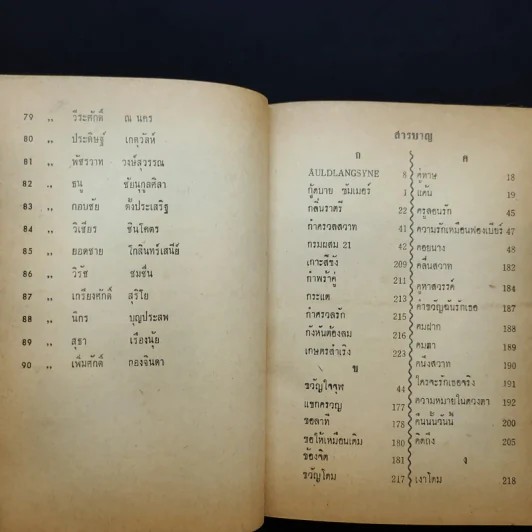 79 ,, วีระศักดิ์ ณ นคร
80 ,, ประดิษฐ์ เกตุวัลห์
81 ,, พัชรวาท วงษ์สุวรรณ
82 ,, ธนู ชัยนุกูลศิลา
83 ,, กอบชัย ตั้งประเสริฐ
84 ,, วิเชียร ชินโคตร
85 ,, ยอดชาย โกสินทร์เสนีย์
86 ,, วิรัช ชมชื่น
87 ,, เกรียงศักดิ์ สุริโย
88 ,, นิกร บุญประสพ
89 ,, สุธา เรืองนุ้ย
90 ,, เพิ่มศักดิ์ ทองจินดา
สารบาญ
ก
AULDLANGSYNE 8
กู๊ดบาย ซัมเมอร์ 1
กลิ่นราตรี 22
กำศรวลสวาท 41
กรมผสม 21 42
เกาะสีชัง 209
กำพร้าคู่ 211
กระแต 213
กำศรวลรัก 215
กังหันต้องลม 216
เกษตรสำเริง 223
ข
ขวัญใจจุฬ 44
แขกครวญ 177
ขอลาที 178
ขอให้เหมือนเดิม 180
ข้องจิต 181
ขวัญโดม 217
ค
คู่ทาษ 18
แค้น 19
ครูสอนรัก 45
ความรักเหมือนฟองเบียร์ 47
คอยนาง 48
คลื่นสวาท 182
คูหาสวรรค์ 184
คำขวัญฉันรักเธอ 187
คมฝาก 188
คมตา 189
คนึงสวาท 190
ใครจะรักเธอจริง 191
ความหมายในดวงตา 192
คืนนั้นวันนี้ 200
คิดถึง 205
ง
เงาโดม 218